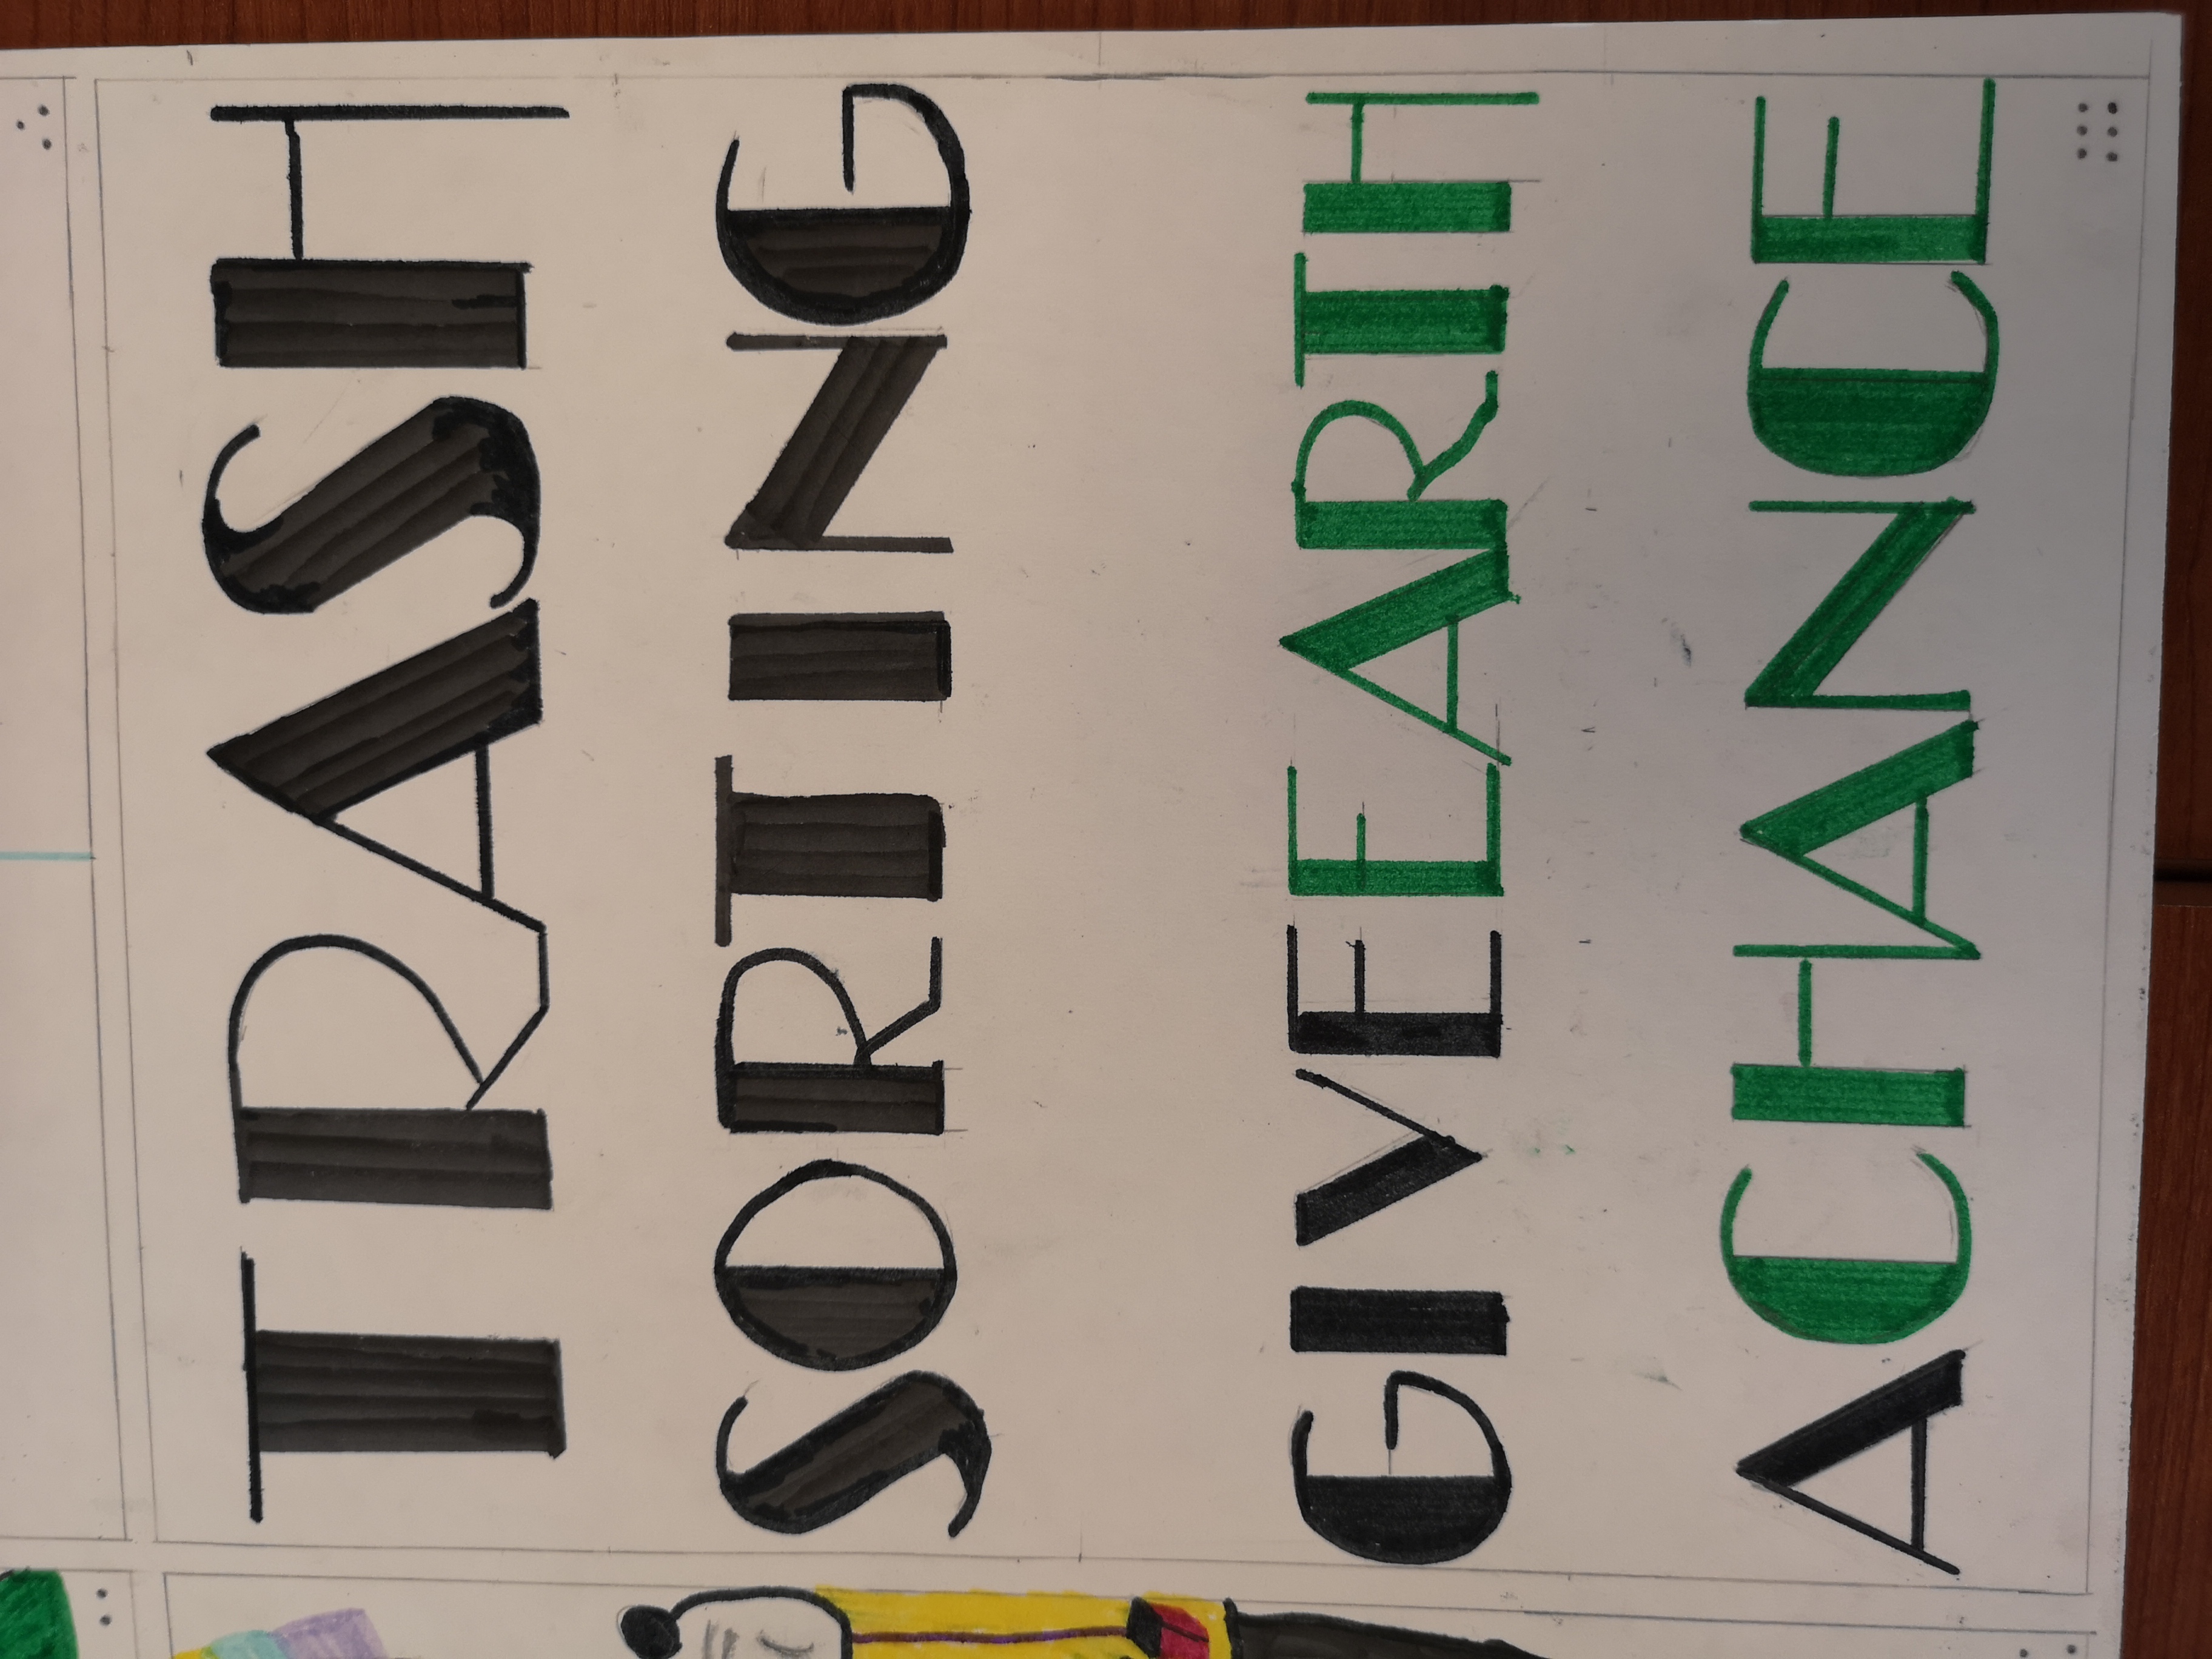 TRASH
SORTING
GIVE EARTH
A CHANCE